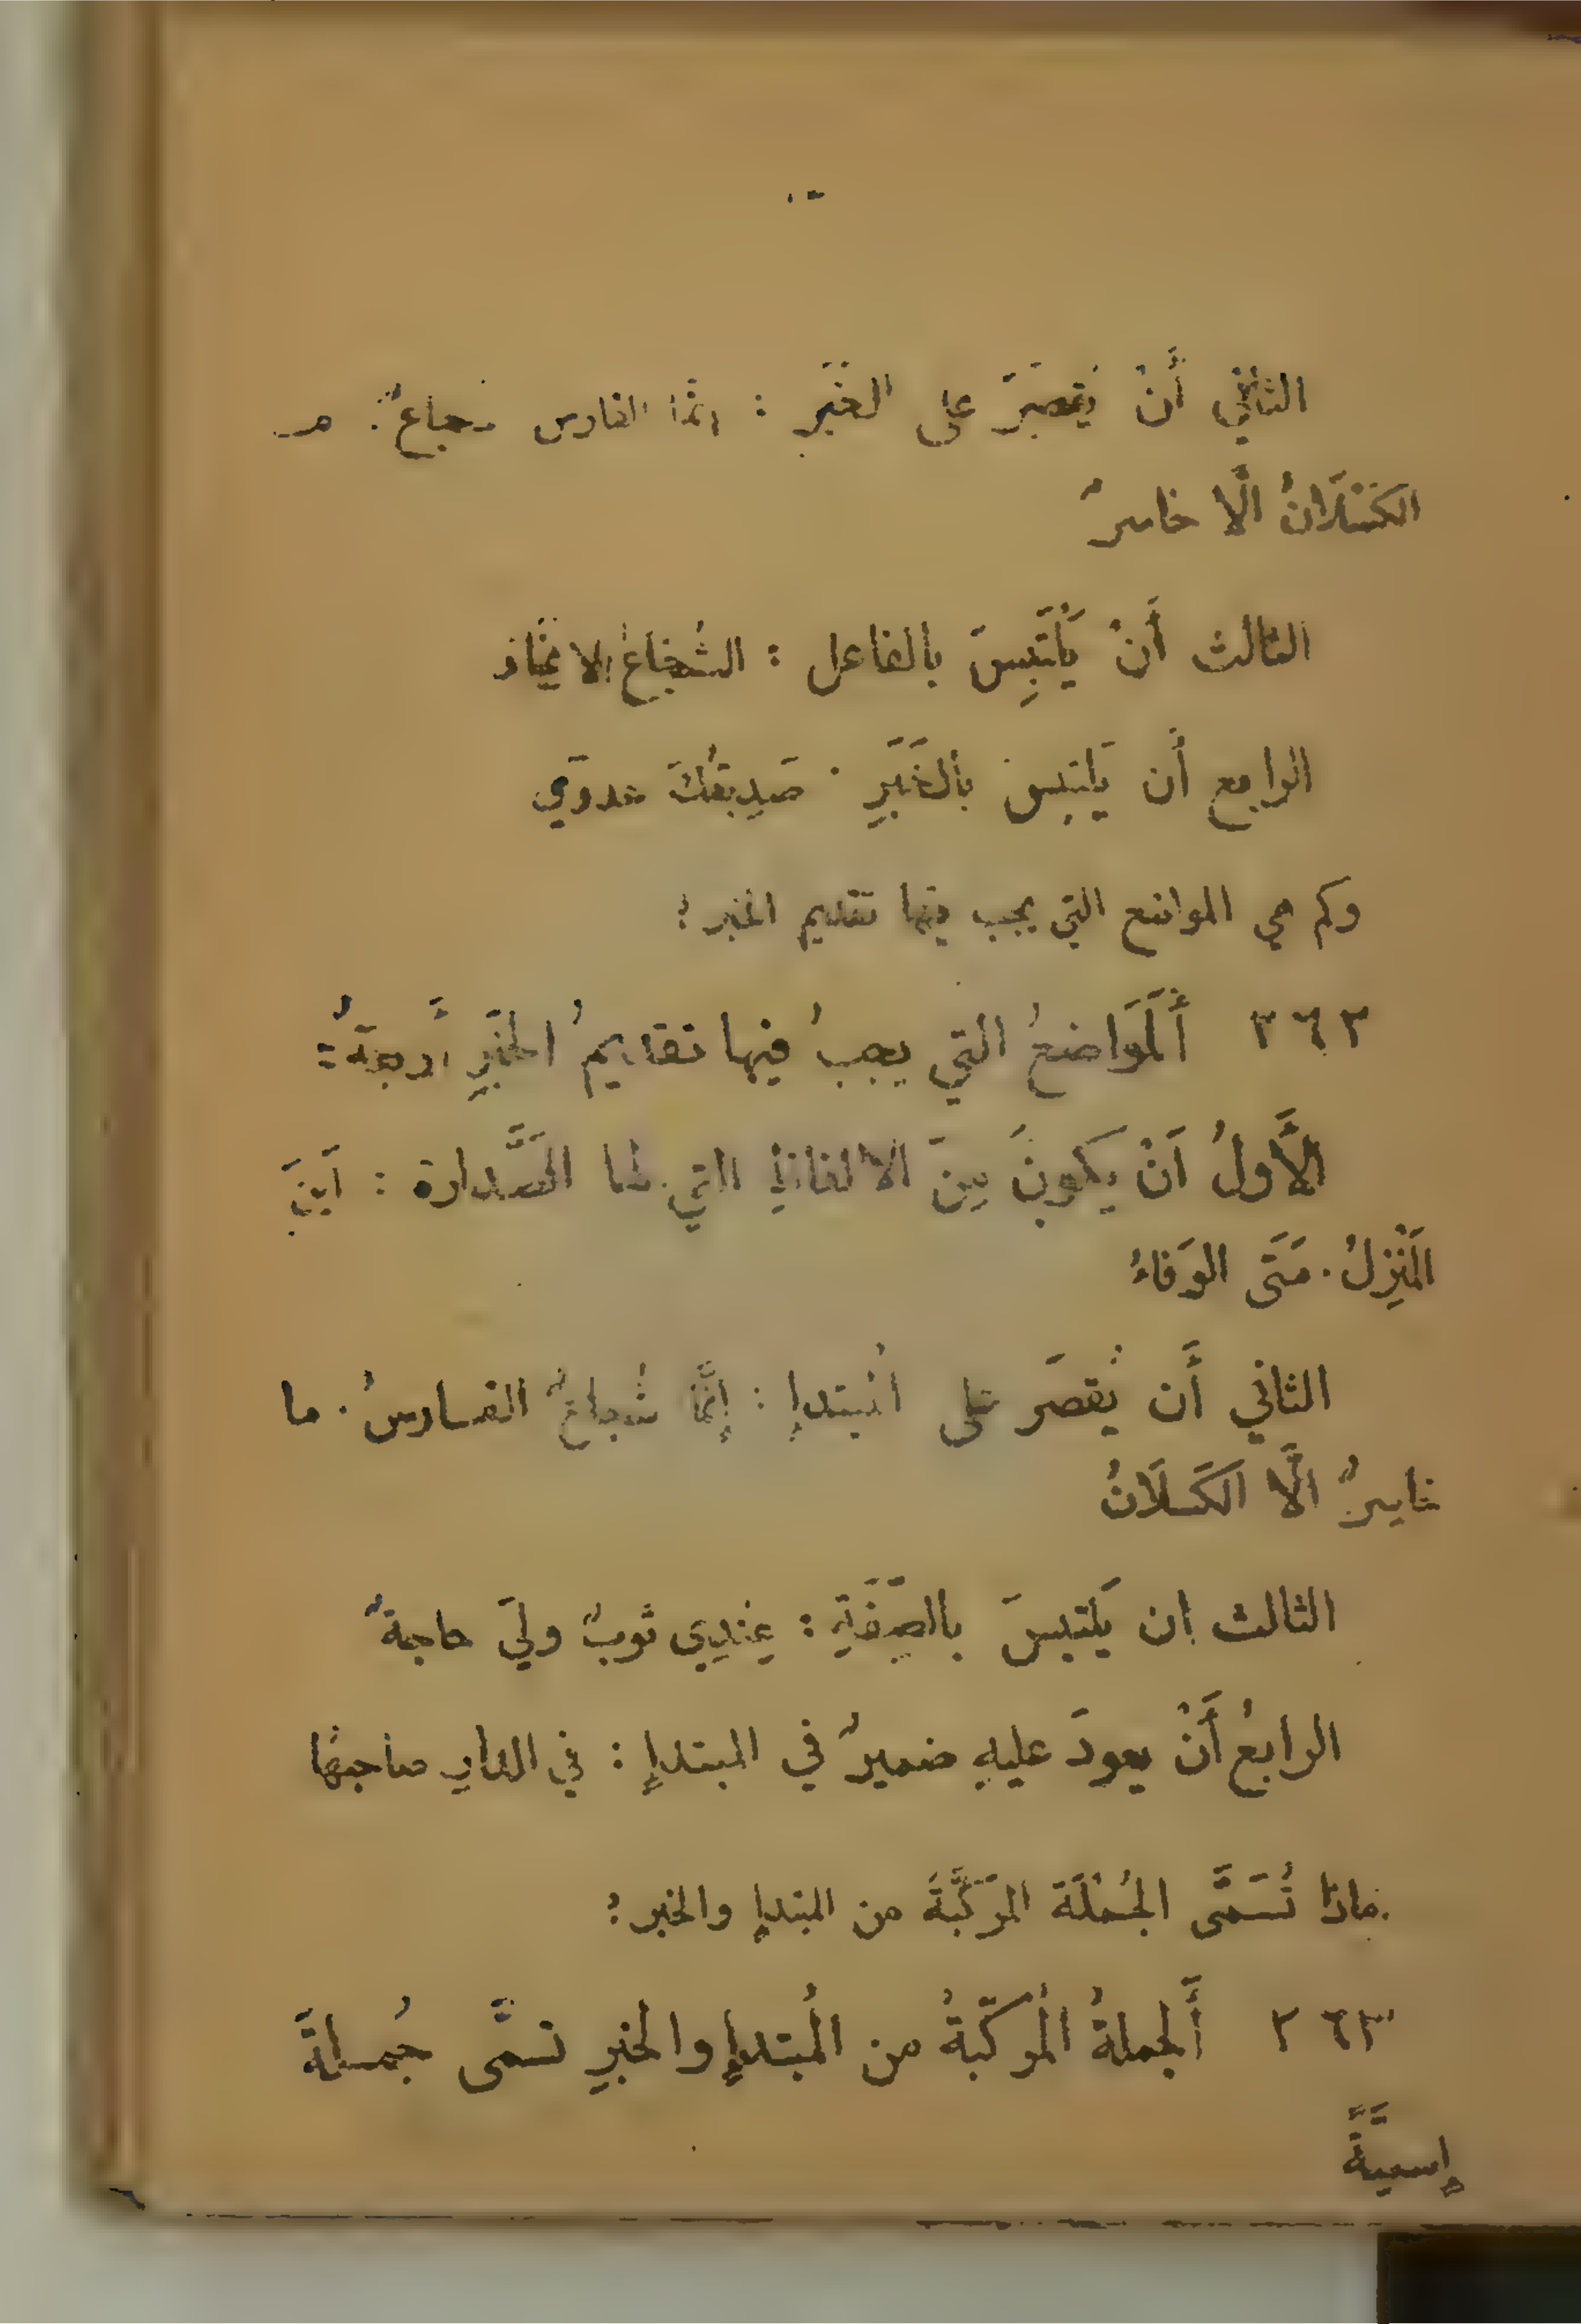 الثاني أَنْ يُقصَرَ على الخَبَر : انَّما الفارس شجاعٌ. ما
الكَسْلَانُ الَّا خاسرٌ
الثالث أَنْ يَلْتَبِسَ بالفاعل : الشُجَاعُ لا يَخاف
الرابع أَن يَلتبِسَ بالخَبَرِ : صَدِيقُكَ عدوّي
وكم هي المواضع التي يجب فيها تقديم الخبر؟
٢٦٢ أَلمَوَاضعُ التي يجبُ فيها تقديمُ الخبَرِ أَربعةٌ :
الأَوَّلُ أَنْ يكونَ مِنَ الالفاظِ التي لها الصَّدارة : أَينَ
المَنْزِلُ. مَتَى الوَفاءُ
الثاني أَن يُقصَر على المبتدإِ : إِنَّما شُجاعٌ الفارسُ. ما
خاسِرٌ الَّا الكَسلَانُ
الثالث ان يَلتبسَ بالصِفَةِ : عِندِي ثوبٌ وليَ حاجةٌ
الرابعُ أَنْ يعودَ عليهِ ضميرٌ في المبتدإِ : في الدارِ صاحبُها
ماذا تُسَمَّى الجُملَة المرَكَّبَةَ من المبتدإِ والخبر؟
٢٦٣ أَلجملةُ المُركّبةُ من المُبتدإِ والخبرِ تسمَّى جُملةً
إِسميَّةً